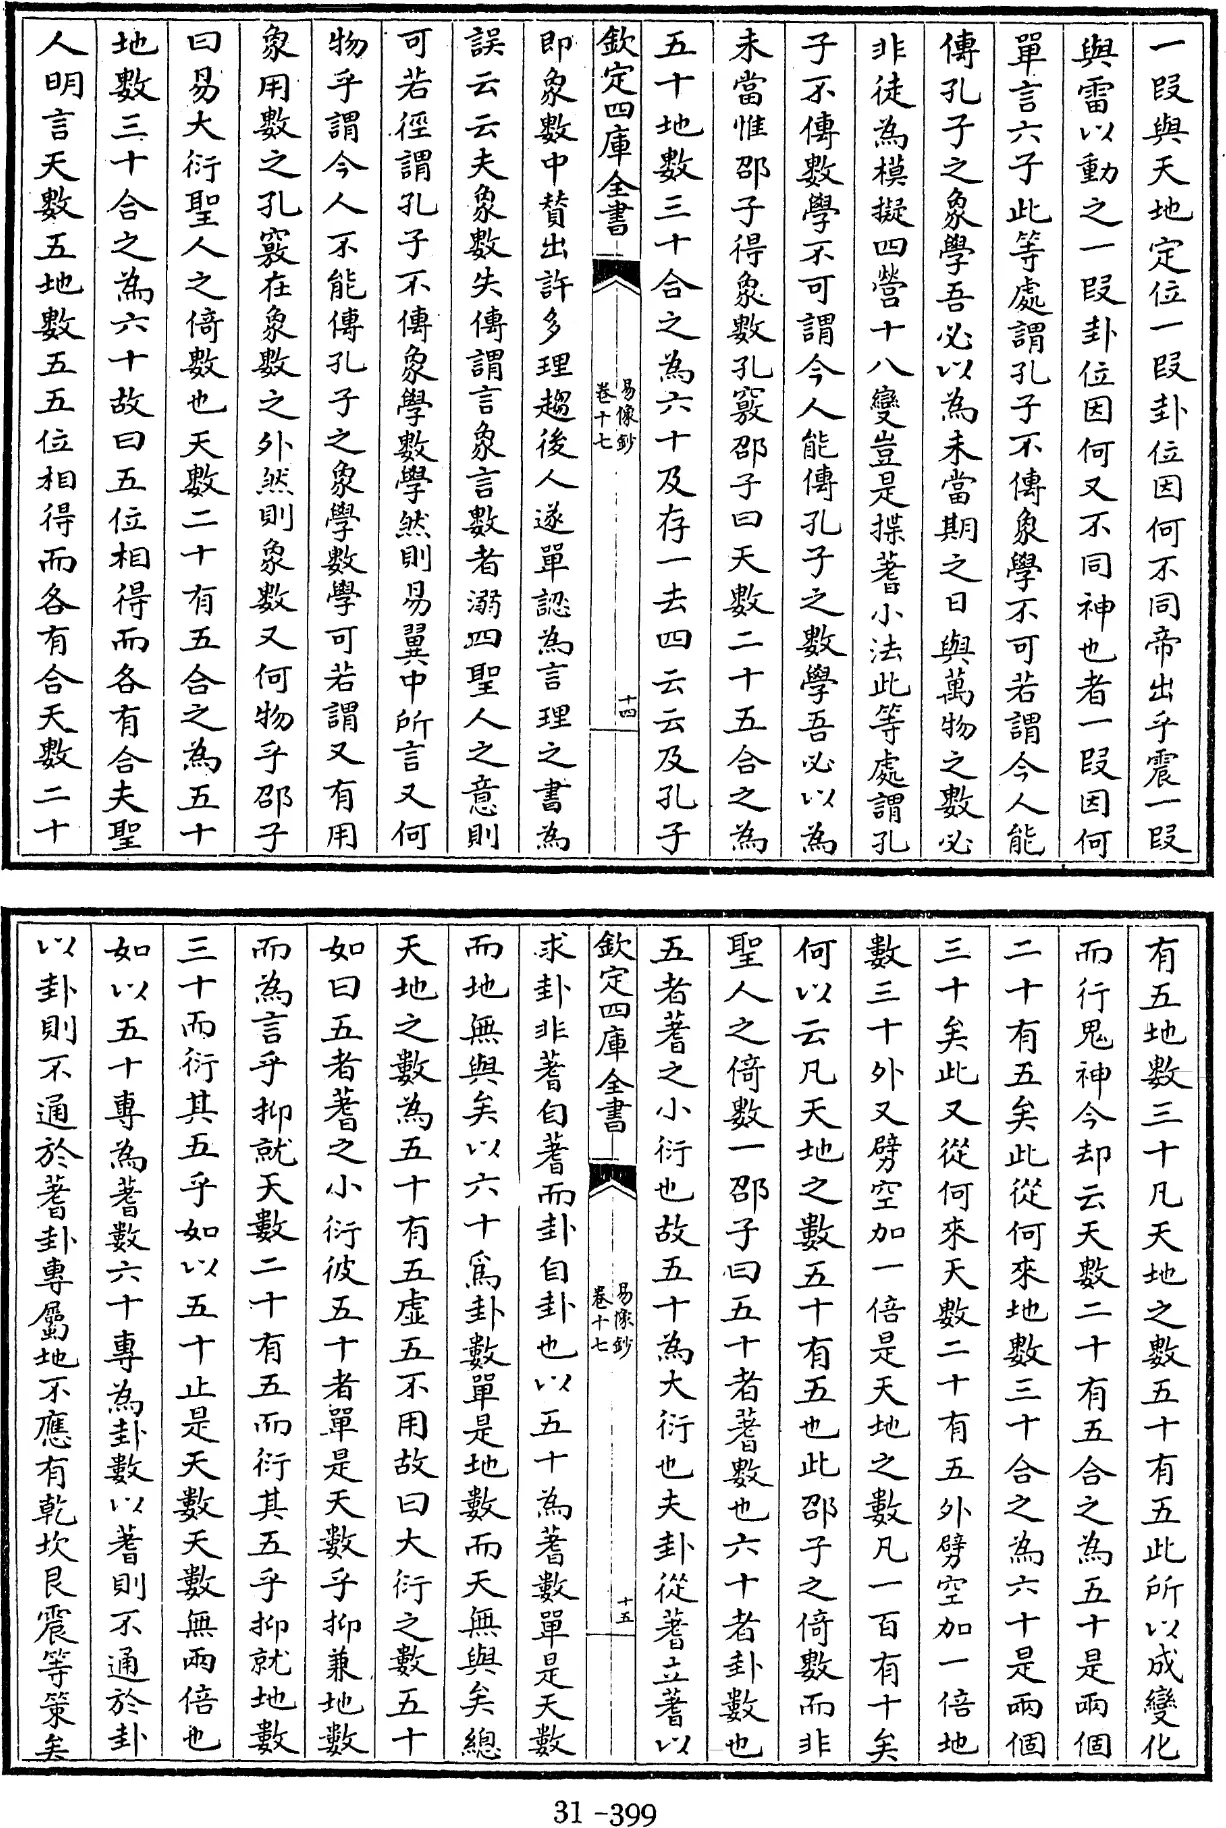 一段與天地定位一段卦位因何不同帝出乎震一段
與雷以動之一段卦位因何又不同神也者一段因何
單言六子此等處謂孔子不傳象學不可若謂今人能
傳孔子之象學吾必以為未當期之日與萬物之數必
非徒為模擬四營十八變豈是揲蓍小法此等處謂孔
子不傳數學不可謂今人能傳孔子之數學吾必以為
未當惟邵子得象數孔竅邵子曰天數二十五合之為
五十地數三十合之為六十及存一去四云云及孔子
欽定四庫全書
易像鈔
卷十七
十四
即象數中賛出許多理趨後人遂單認為言理之書為
誤云云夫象數失傳謂言象言數者溺四聖人之意則
可若徑謂孔子不傳象學數學然則易翼中所言又何
物乎謂今人不能傳孔子之象學數學可若謂又有用
象用數之孔竅在象數之外然則象數又何物乎邵子
曰易大衍聖人之倚數也天數二十有五合之為五十
地數三十合之為六十故曰五位相得而各有合夫聖
人明言天數五地數五五位相得而各有合天數二十
有五地數三十凡天地之數五十有五此所以成變化
而行鬼神今却云天數二十有五合之為五十是兩個
二十有五矣此從何來地數三十合之為六十是兩個
三十矣此又從何來天數二十有五外劈空加一倍地
數三十外又劈空加一倍是天地之數凡一百有十矣
何以云凡天地之數五十有五也此邵子之倚數而非
聖人之倚數一邵子曰五十者蓍數也六十者卦數也
五者蓍之小衍也故五十為大衍也夫卦從蓍立蓍以
欽定四庫全書
易像鈔
卷十七
十五
求卦非蓍自蓍而卦自卦也以五十為蓍數單是天數
而地無與矣以六十爲卦數單是地數而天無與矣總
天地之數為五十有五虛五不用故曰大衍之數五十
如曰五者蓍之小衍彼五十者單是天數乎抑兼地數
而為言乎抑就天數二十有五而衍其五乎抑就地數
三十而衍其五乎如以五十止是天數天數無兩倍也
如以五十專為蓍數六十專為卦數以蓍則不通於卦
以卦則不通於蓍卦專屬地不應有乾坎艮震等策矣
31-399